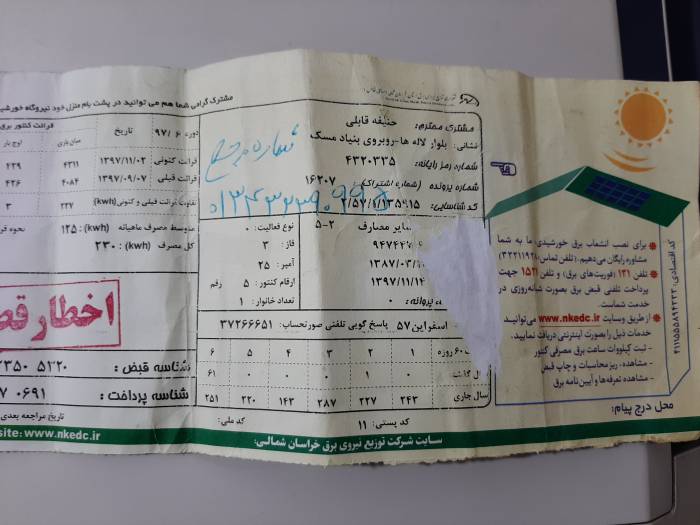 مشترک گرامی شما هم می توانید در پشت بام منزل خود نیروگاه خورشیدی
مشترک محترم: حنیفه قابلی
نشانی: بلوار لاله ها-روبروی بنیاد مسک
شماره رمز رایانه: ۴۳۲۰۳۳۵
شماره پرونده (شماره اشتراک): ۱۶۲۰۷
کد شناسایی:
سایر مصارف ۵-۲
۱۳۹۷/۱۱/۱۴
پروانه: ۰
نوع فعالیت: ۰
فاز: ۳
آمپر: ۲۵
ارقام کنتور: ۵ رقم
تعداد خانوار: ۱
اسفراین ۵۷ پاسخ گویی تلفنی صورتحساب: ۳۷۲۶۶۶۵۱
۶۰ روزه ۱ ۲ ۳ ۴ ۵ ۶
۰ ۰ ۰ ۰ ۰ ۶۱
سال جاری ۲۴۳ ۲۲۷ ۲۸۷ ۱۴۳ ۲۲۰ ۲۵۱
کد پستی: ۱۱ کد ملی:
دوره ۹۷/۶ تاریخ
قرائت کنتور برق
میان باری اوج بار
قرائت کنونی ۱۳۹۷/۱۱/۰۲ ۴۳۱۱ ۴۳۹
قرائت قبلی ۱۳۹۷/۰۹/۰۷ ۴۰۸۴ ۴۳۶
تفاوت قرائت قبلی و کنونی (kwh) ۲۲۷ ۳
متوسط مصرف ماهیانه (kwh): ۱۲۵ نحوه
کل مصرف (kwh): ۲۳۰
اخطار
شناسه قبض: ۵۱۲۰ ۲۳۵۰
شناسه پرداخت: ۰۶۹۱
تاریخ مراجعه بعدی
site: www.nkedc.ir
سایت شرکت توزیع نیروی برق خراسان شمالی:
برای نصب انشعاب برق خورشیدی ما به شما
مشاوره رایگان می‌دهیم. (تلفن تماس: ۳۲۲۱۱۹۲۸)
تلفن ۱۲۱ (فوریت‌های برق) و تلفن ۱۵۲۱ جهت
پرداخت تلفنی قبض برق بصورت شبانه‌روزی در
خدمت شماست
از طریق وبسایت www.nkedc.ir می‌توانید
خدمات ذیل را بصورت اینترنتی دریافت نمایید.
- ثبت کیلووات ساعت برق مصرفی کنتور
- مشاهده، ریز محاسبات و چاپ قبض
- مشاهده تعرفه‌ها و آیین‌نامه برق
محل درج پیام: